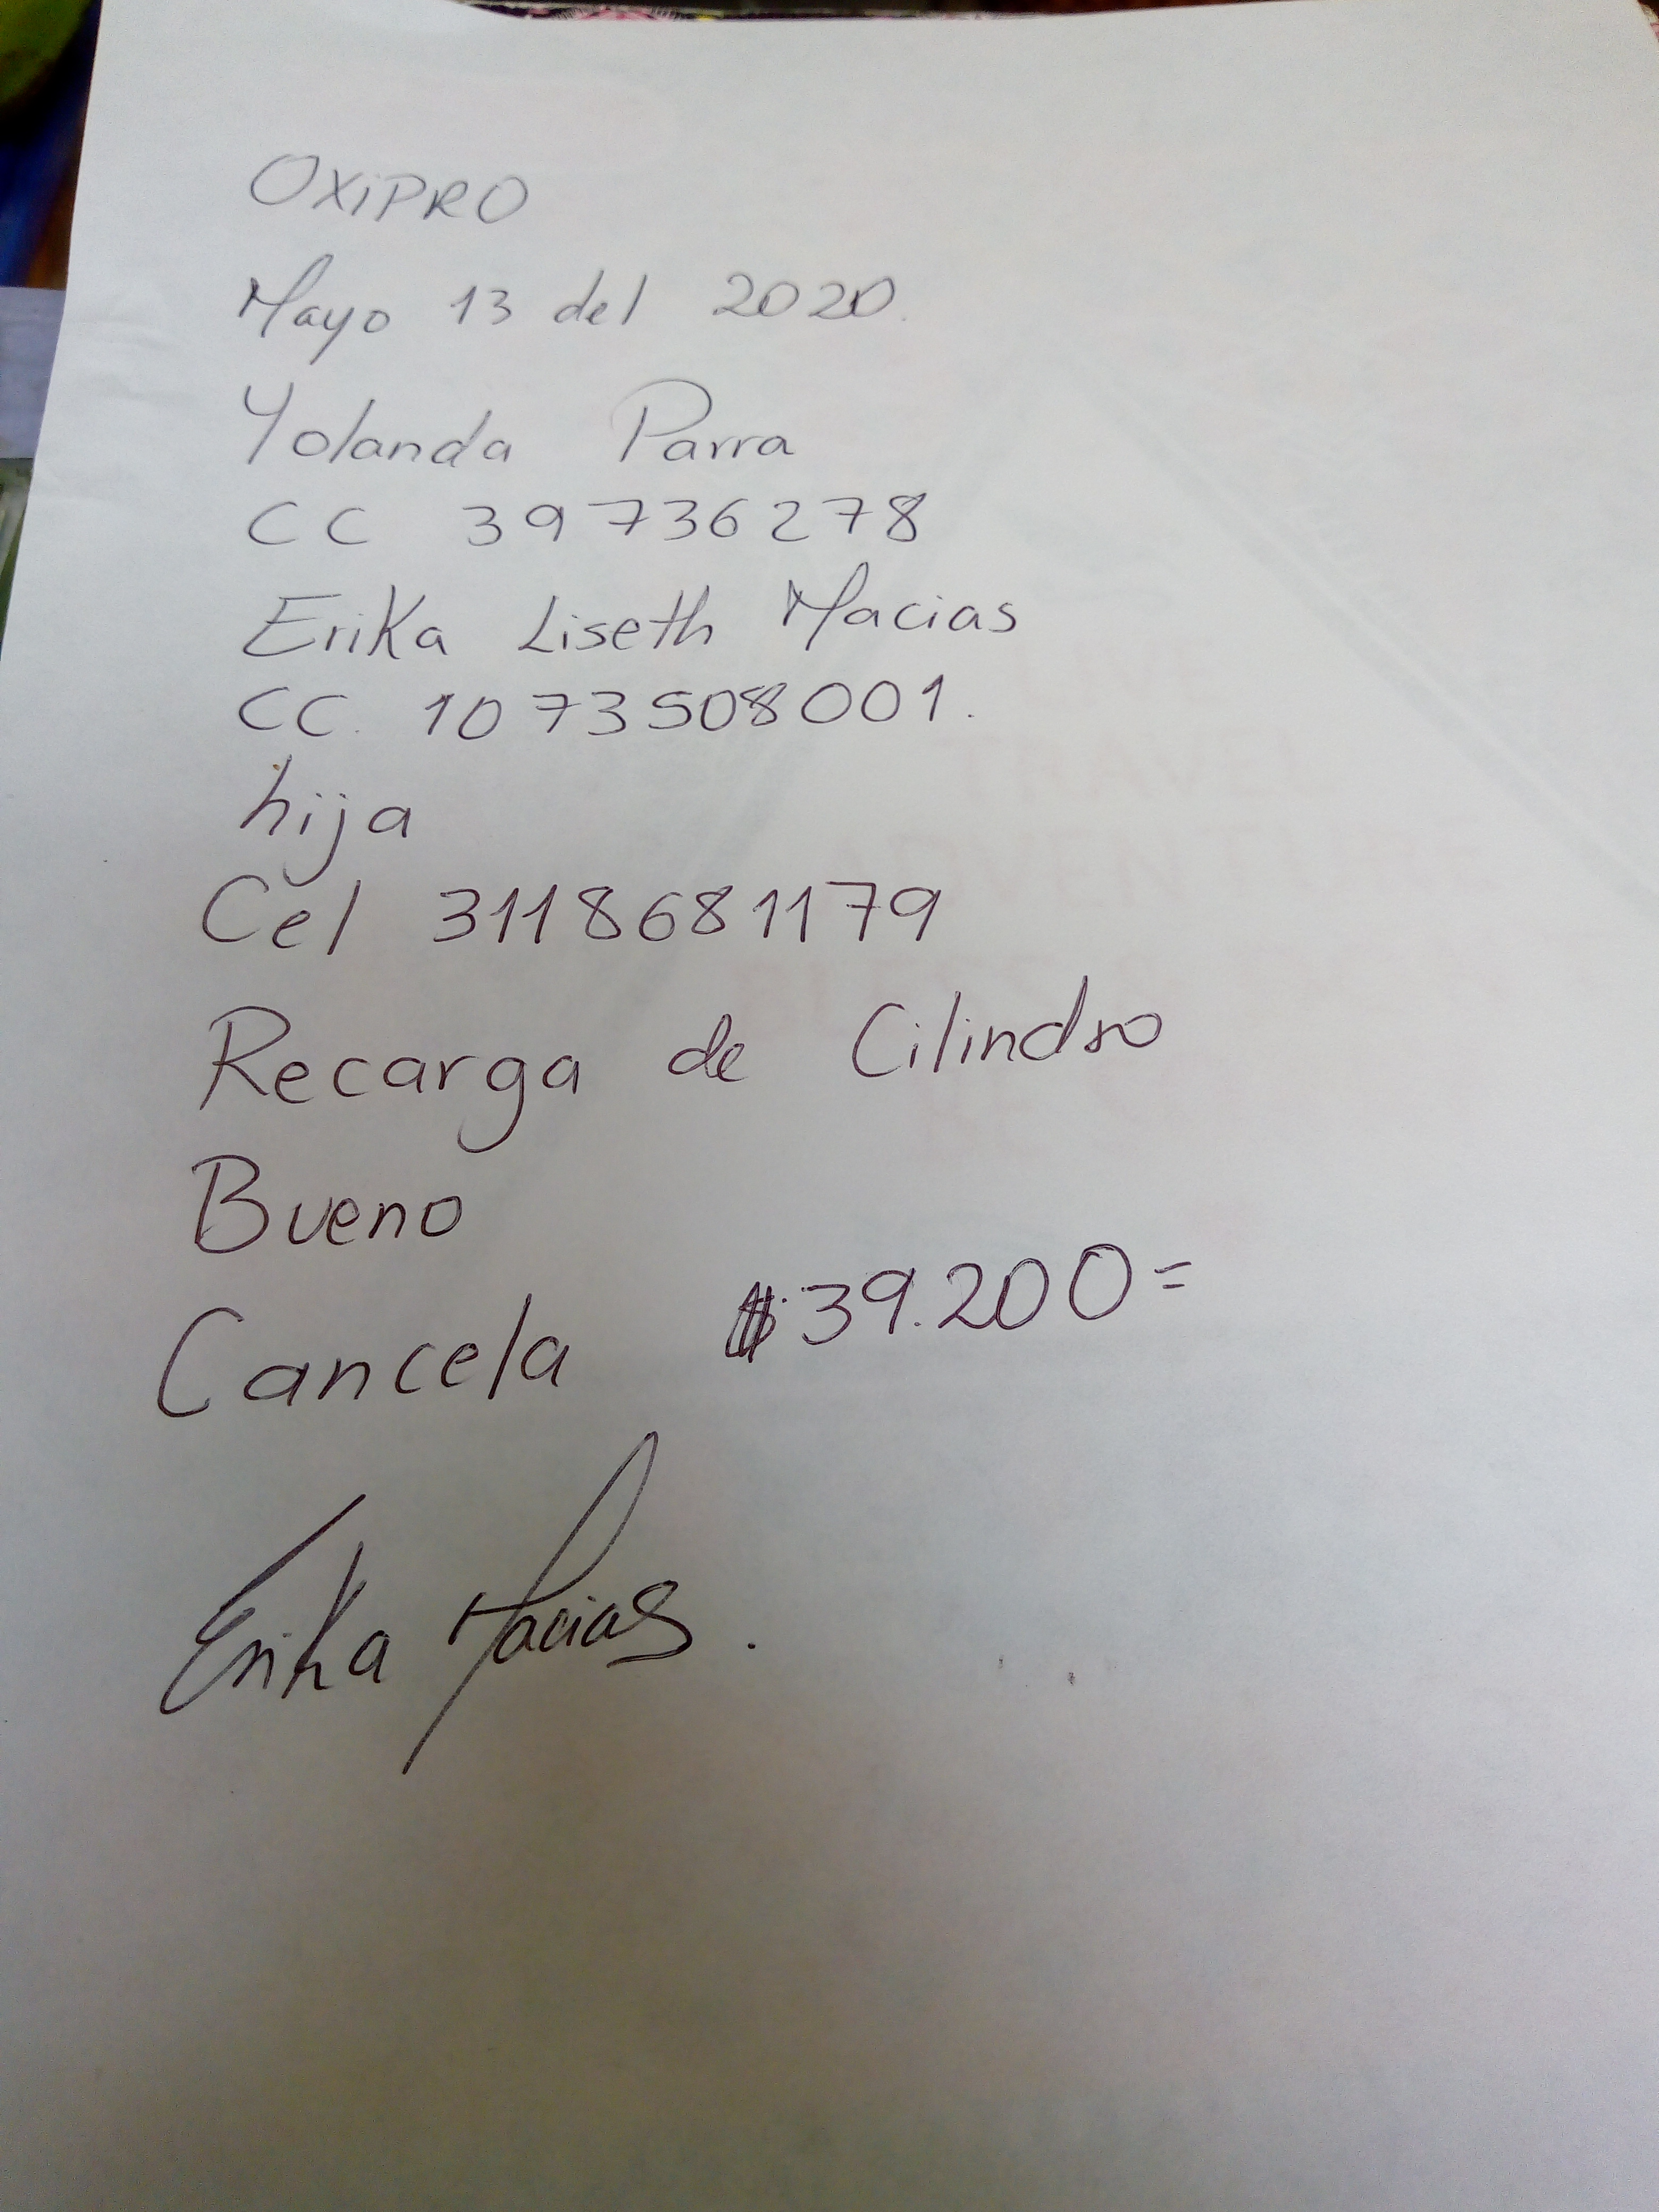 OXiPRO
Mayo 13 del 2020.
Yolanda Parra
CC 39736278
Erika Liseth Macias
CC. 1073508001.
hija
Cel 3118681179
Recarga de Cilindro
Bueno
Cancela $39.200=
Erika Macias.